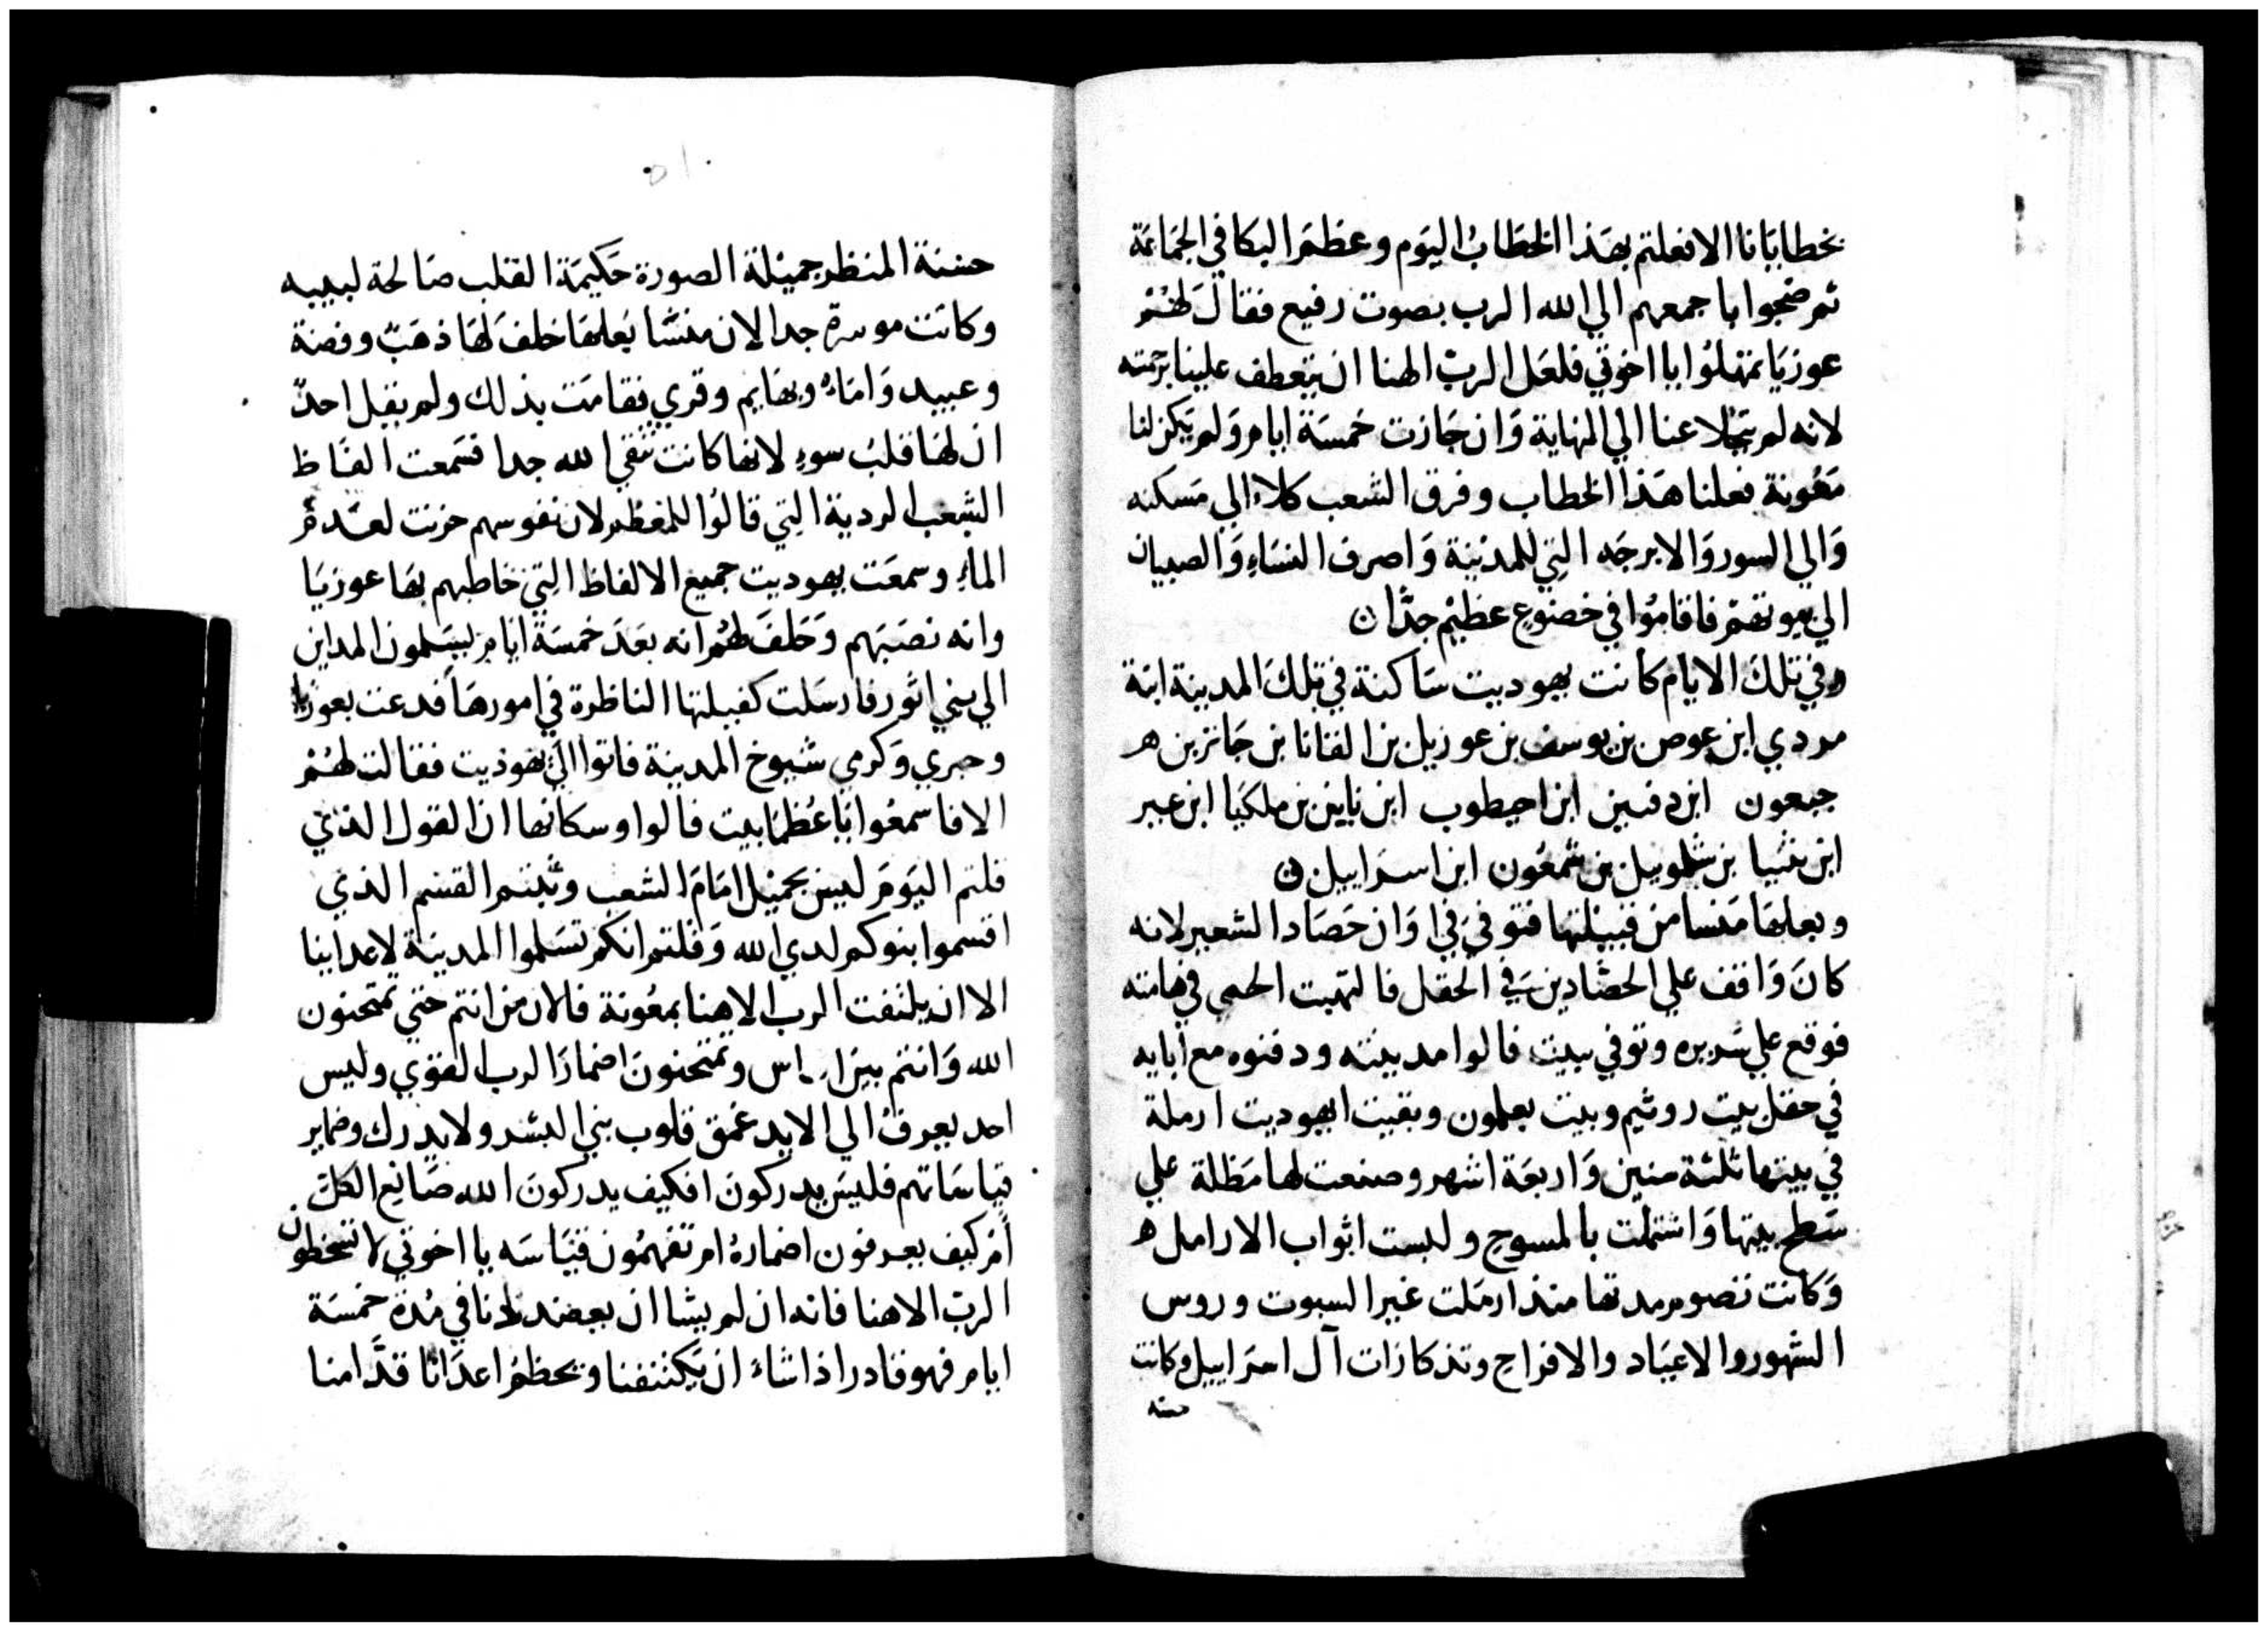 بخطابانا الا فعلتم بهذا الخطاب اليوم وعظم البكا في الجماعة
ثم ضجوا باجمعهم الي الله الرب بصوت رفيع فقال لهم
عوزيا تمهلوا يا اخوتي فلعل الرب الهنا ان يتعطف علينا برحمته
لانه لم يتخلا عنا الي النهاية وان جازت خمسة ايام ولم يكن لنا
معونة فعلنا هذا الخطاب وفرق الشعب كلاء الي مسكنه
والي السور والابرجه التي للمدينة واصرف النساء والصبيان
الي بيوتهم فاقاموا في خضوع عظيم جدا
وفي تلك الايام كانت يهوديت ساكنة في تلك المدينة ابنة
مردي ابن عوص بن يوسف بن عوزيل بن الفانا بن
جبعون ابن دفنين ابن احيطوب ابن ناين بن ملكيا ابن عبر
ابن نثنيا بن شلوميل بن شمعون ابن اسراييل
وبعلها منسا من قبيلتها فتوفي في اوان حصاد الشعير لانه
كان واقف علي الحصادين في الحقل فالتهبت الحمي في هامته
فوقع علي سريره وتوفي ببيت فالوا مدينته ودفنوه مع ابايه
في حقل بيت روثيم وبيت بعلمون وبقيت يهوديت ارملة
في بيتها ثلثة سنين واربعة اشهر وصنعت لها مظلة علي
سطح بيتها واشتملت بالمسوح ولبست اثواب الارامل
وكانت تصوم مدتها منذ ارملت غير السبوت وروس
الشهور والاعياد والافراح وتذكارات آل اسراييل وكانت
حسنه
حسنة المنظر جميلة الصورة حكيمة القلب صالحة لبيبه
وكانت موسرة جدا لان منسا بعلها خلف لها ذهب وفضة
وعبيد واماء وبهايم وقري فقامت بذلك ولم يقبل احد
ان لها قلب سوء لانها كانت تتقي الله جدا فسمعت الفاظ
الشعب الردية التي قالوا للمعظم لان نفوسهم حزنت لعدم
الماء وسمعت يهوديت جميع الالفاظ التي خاطبهم بها عوزيا
وانه نصبهم وحلف لهم انه بعد خمسة ايام يسلمون المداين
الي بني اثور فارسلت كفيلتها الناظرة في امورها فدعت بعوزيا
وحبري وكرمي شيوخ المدينة فاتوا الي يهوديت فقالت لهم
الا فاسمعوا يا عظما بيت فالوا وسكانها ان القول الذي
قلتم اليوم ليس بجميل امام الشعب وثبتم القسم الذي
اقسموا بنوكم لدي الله وقلتم انكم تسلموا المدينة لاعداينا
الا ان يلتفت الرب الاهنا بمعونة فالان من انتم حتي تمتحنون
الله وانتم بين الناس وتمتحنون اضمار الرب القوي وليس
احد يعرف الي الابد عمق قلوب بني البشر ولا يدرك وضماير
قياساتهم فليس يدركون افكيف يدركون الله صانع الكل
ام كيف يعرفون اضماره ام تفهمون قياسه يا اخوتي لا تسخطون
الرب الاهنا فانه ان لم يشا ان يعضدنا في مدة خمسة
ايام فهو قادر اذا شاء ان يكتنفنا ويحطم اعدانا قدامنا